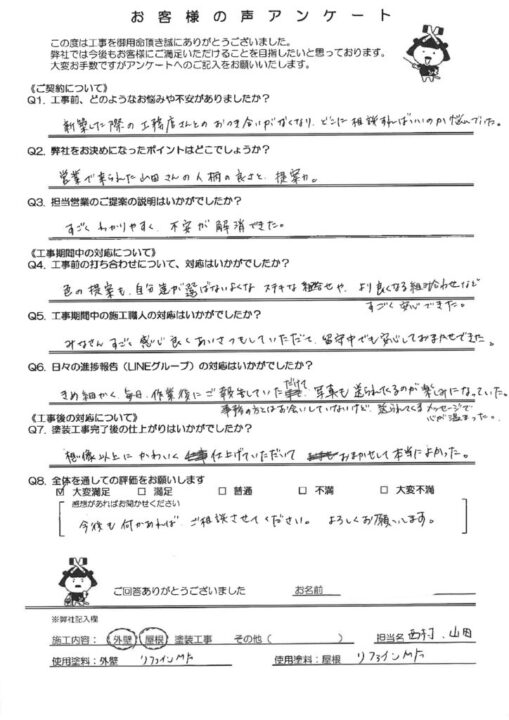 お客様の声アンケート
この度は工事を御用命頂き誠にありがとうございました。
弊社では今後もお客様にご満足いただけることを目指したいと思っております。
大変お手数ですがアンケートへのご記入をお願いいたします。
《ご契約について》
Q1. 工事前、どのようなお悩みや不安がありましたか？
新築した際の工務店さんとのおつき合いがなくなり、どこに相談すればいいのか悩んでいた。
Q2. 弊社をお決めになったポイントはどこでしょうか？
営業で来られた山田さんの人柄の良さと、提案力。
Q3. 担当営業のご提案の説明はいかがでしたか？
すごくわかりやすく、不安が解消できた。
《工事期間中の対応について》
Q4. 工事前の打ち合わせについて、対応はいかがでしたか？
色の提案も、自分達が選ばないような ステキな組合せや、より良くなる組み合わせなど
すごく安心できた。
Q5. 工事期間中の施工職人の対応はいかがでしたか？
みなさんすごく感じ良くあいさつもしていただいて、留守中でも安心しておまかせできた。
Q6. 日々の進捗報告（LINEグループ）の対応はいかがでしたか？
きめ細かく、毎日、作業後にご報告していただけて、写真も送られてくるのが楽しみになっていた。
事務の方とはお会いしていないけど、送られてくるメッセージで
心が温まった。
《工事後の対応について》
Q7. 塗装工事完了後の仕上がりはいかがでしたか？
想像以上にかわいく 仕上げていただいて おまかせして本当によかった。
Q8. 全体を通しての評価をお願いします
☑ 大変満足 □ 満足 □ 普通 □ 不満 □ 大変不満
感想があればお聞かせください
今後も何かあれば ご相談させてください。 よろしくお願いします。
ご回答ありがとうございました
お名前
※弊社記入欄
施工内容： 外壁 屋根 塗装工事 その他（ ） 担当名 西村、山田
使用塗料：外壁 リファインMF 使用塗料：屋根 リファインMF